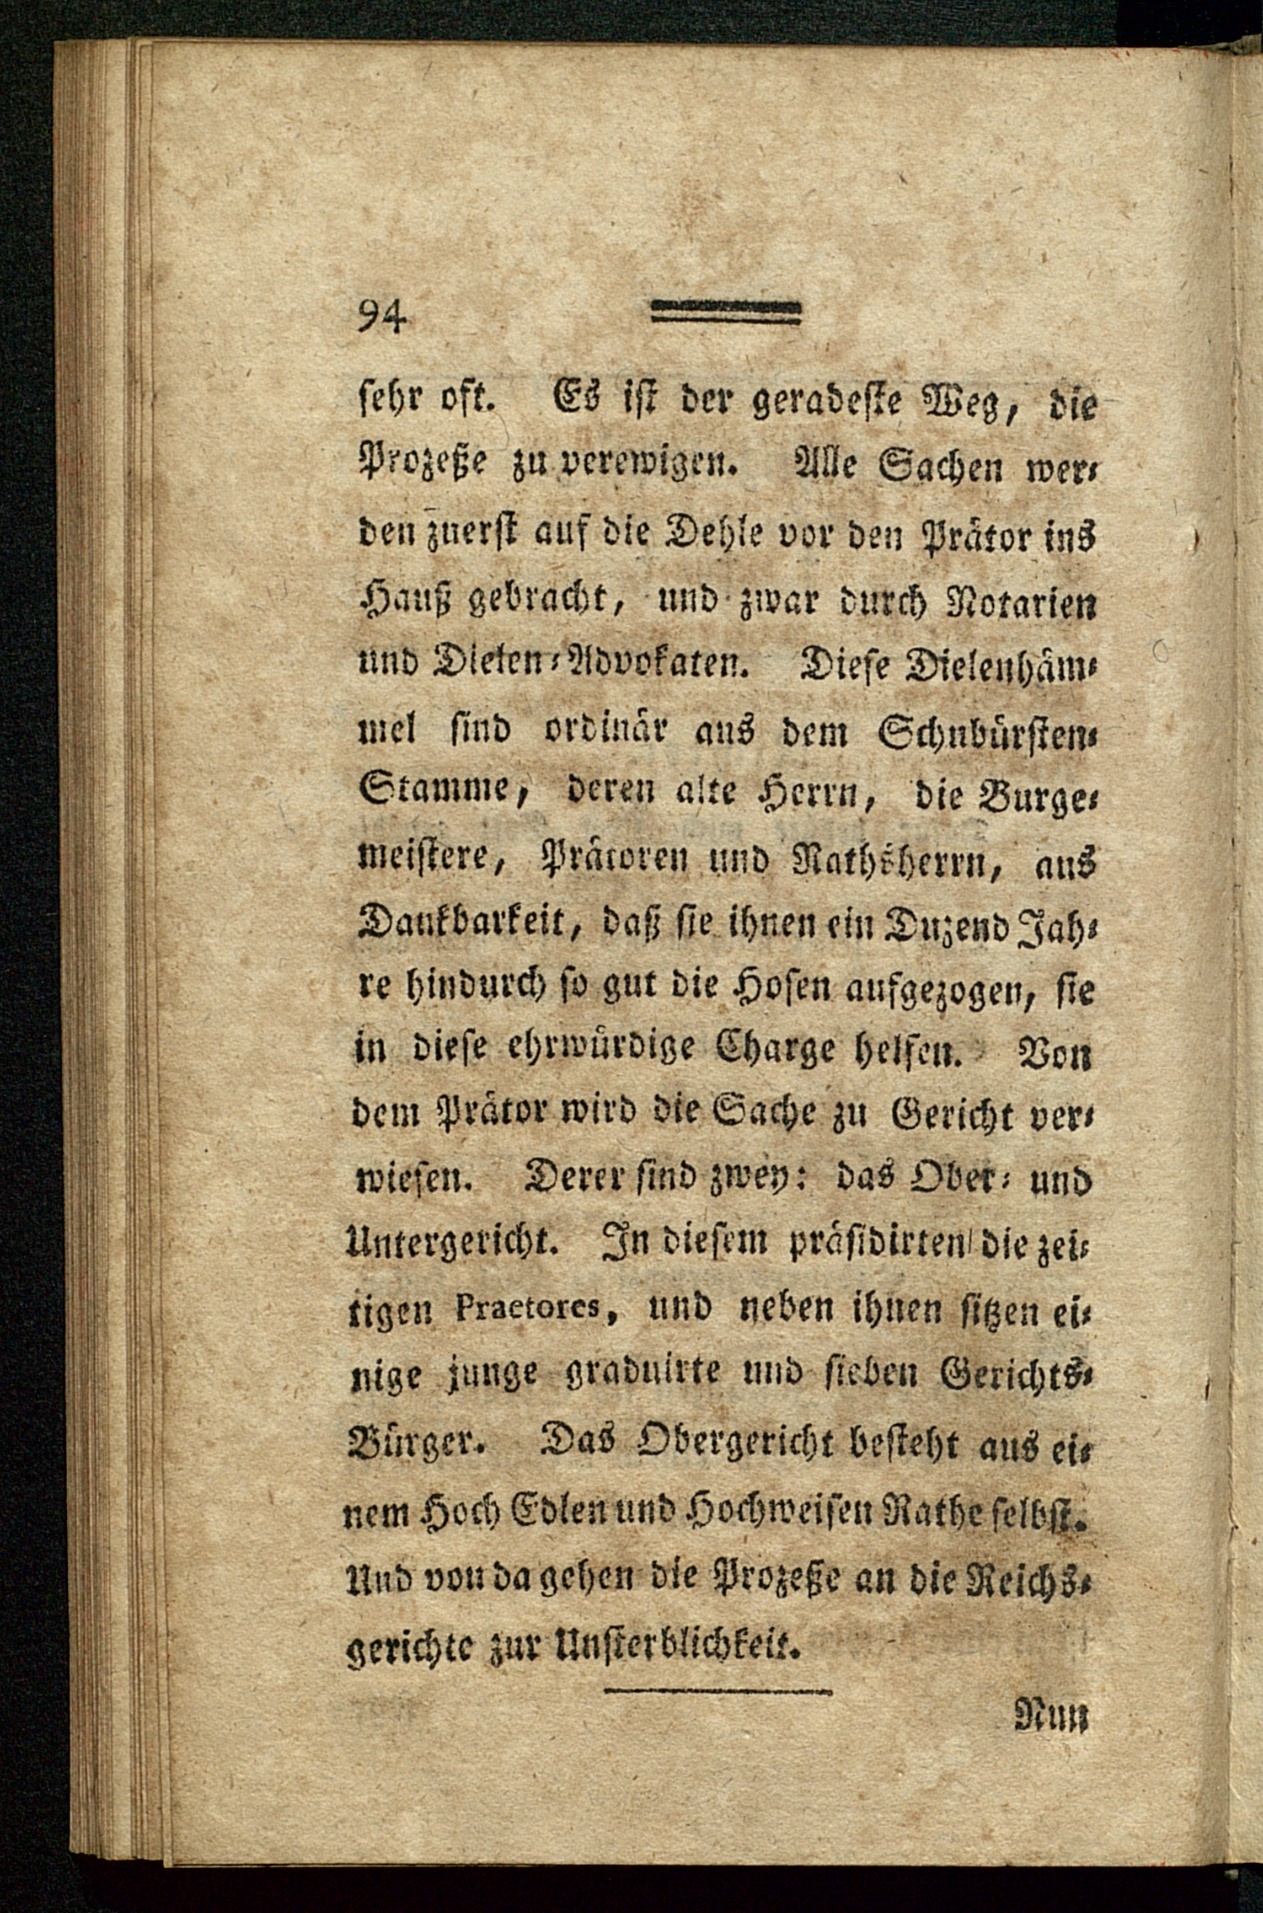 94
sehr oft. Es ist der geradeste Weg, die
Prozeße zu verewigen. Alle Sachen wer-
den zuerst auf die Dehle vor den Prätor ins
Hauß gebracht, und zwar durch Notarien
und Dielen-Advokaten. Diese Dielenhäm-
mel sind ordinär aus dem Schubürsten-
Stamme, deren alte Herrn, die Burge-
meistere, Prätoren und Rathsherrn, aus
Dankbarkeit, daß sie ihnen ein Duzend Jah-
re hindurch so gut die Hosen aufgezogen, sie
in diese ehrwürdige Charge helfen. Von
dem Prätor wird die Sache zu Gericht ver-
wiesen. Derer sind zwey: das Ober- und
Untergericht. In diesem präsidirten die zei-
tigen Praetores, und neben ihnen sitzen ei-
nige junge graduirte und sieben Gerichts-
Bürger. Das Obergericht besteht aus ei-
nem Hoch Edlen und Hochweisen Rathe selbst.
Und von da gehen die Prozeße an die Reichs-
gerichte zur Unsterblichkeit.
Nun